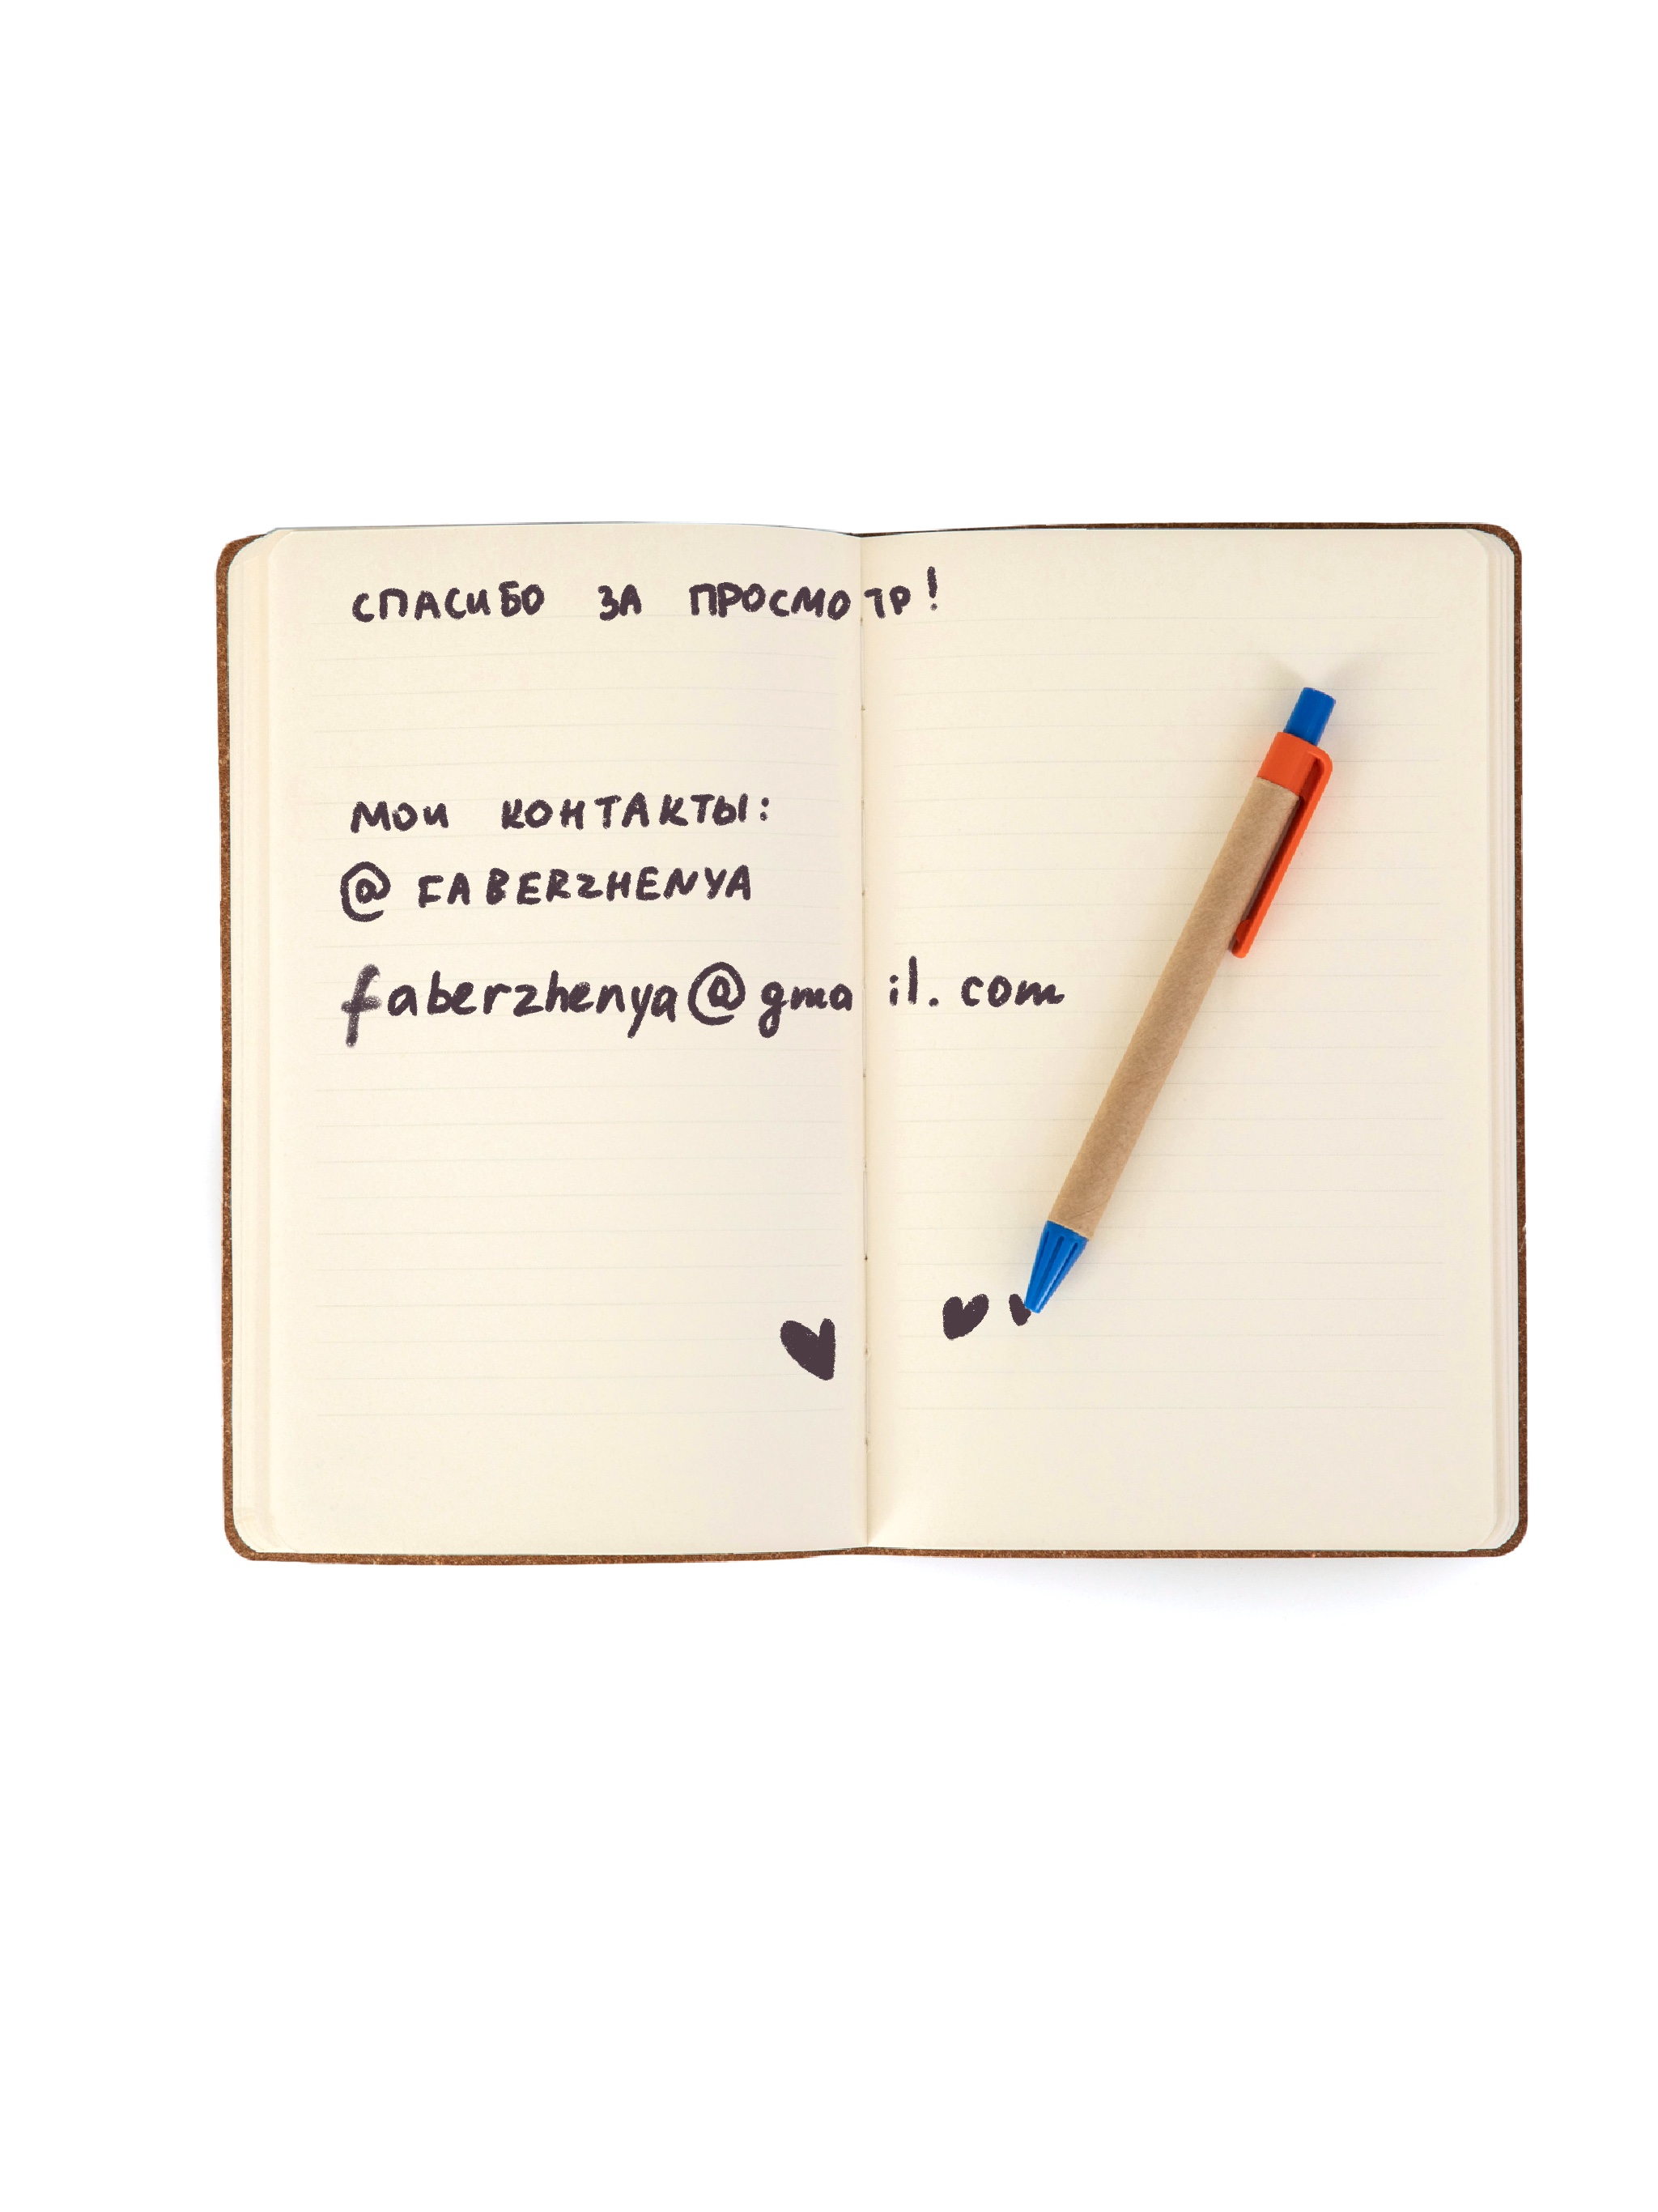 СПАСИБО ЗА ПРОСМОТР!
МОИ КОНТАКТЫ:
@FABERZHENYA
faberzhenya@gmail.com